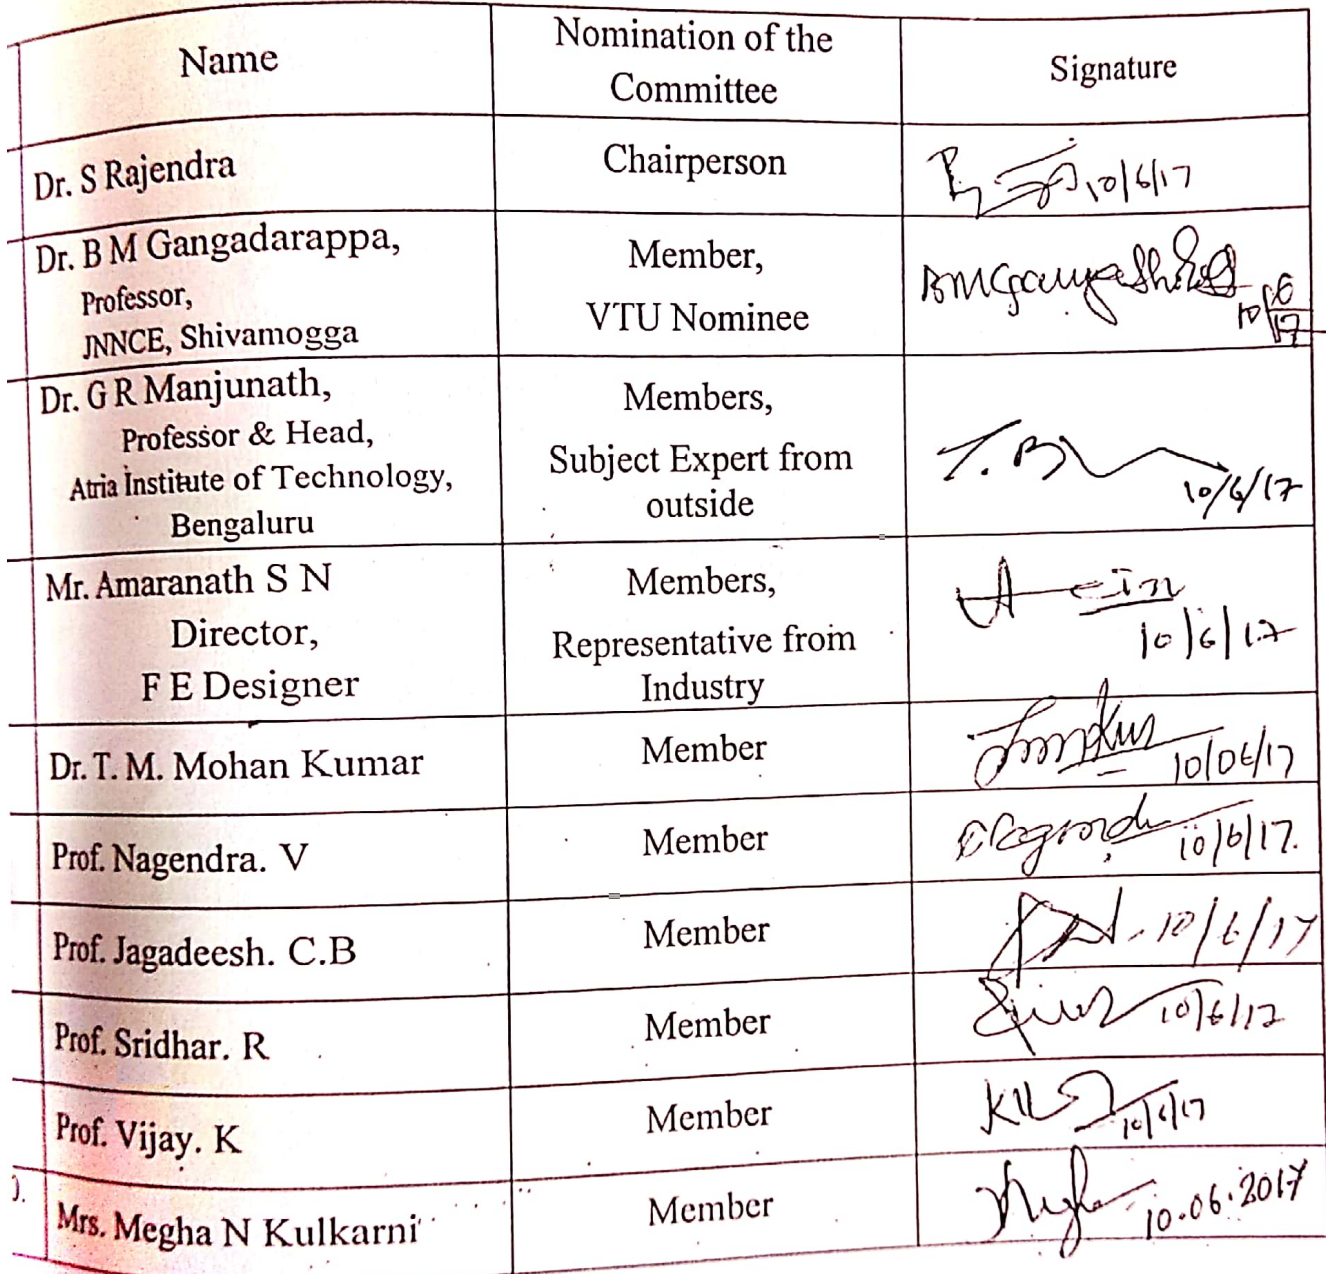 Name
Nomination of the
Committee
Signature
Dr. S Rajendra
Chairperson
10/6/17
Dr. B M Gangadarappa,
Professor,
JNNCE, Shivamogga
Member,
VTU Nominee
10/6/17
Dr. G R Manjunath,
Professor & Head,
Atria Institute of Technology,
Bengaluru
Members,
Subject Expert from
outside
10/6/17
Mr. Amaranath S N
Director,
F E Designer
Members,
Representative from
Industry
10/6/17
Dr. T. M. Mohan Kumar
Member
10/06/17
Prof. Nagendra. V
Member
10/6/17.
Prof. Jagadeesh. C.B
Member
10/6/17
Prof. Sridhar. R
Member
10/6/17
Prof. Vijay. K
Member
10/6/17
Mrs. Megha N Kulkarni
Member
10.06.2017